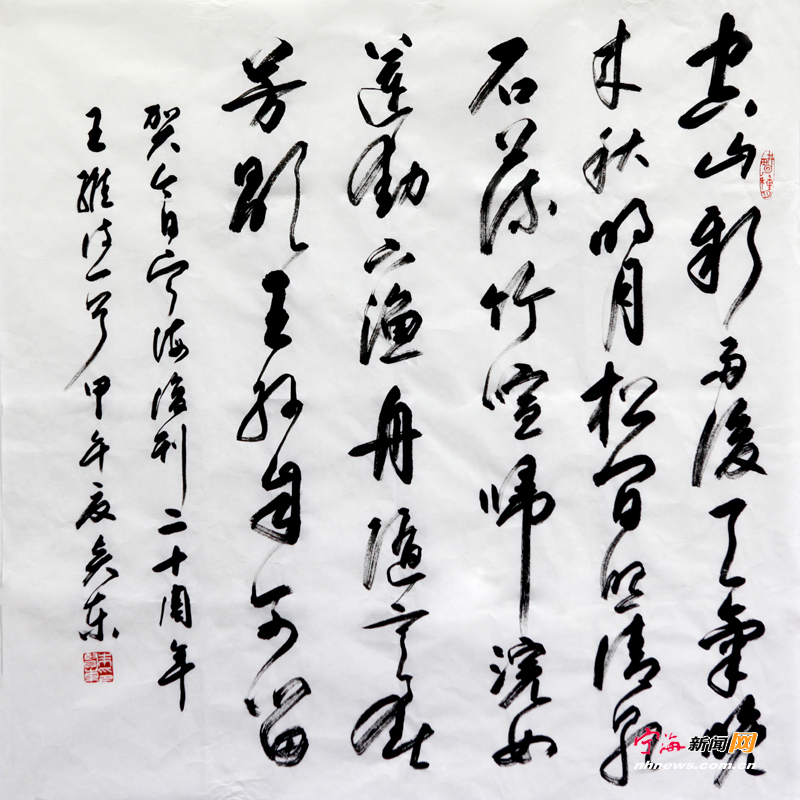 空山新雨後天氣晚
来秋明月松間照清泉
石上流竹喧歸浣女
莲動下漁舟随意春
芳歇王孫自可留
贺今日宁海復刊二十周年
王維诗一首甲午夏
宁海新闻网
nhnews.com.cn